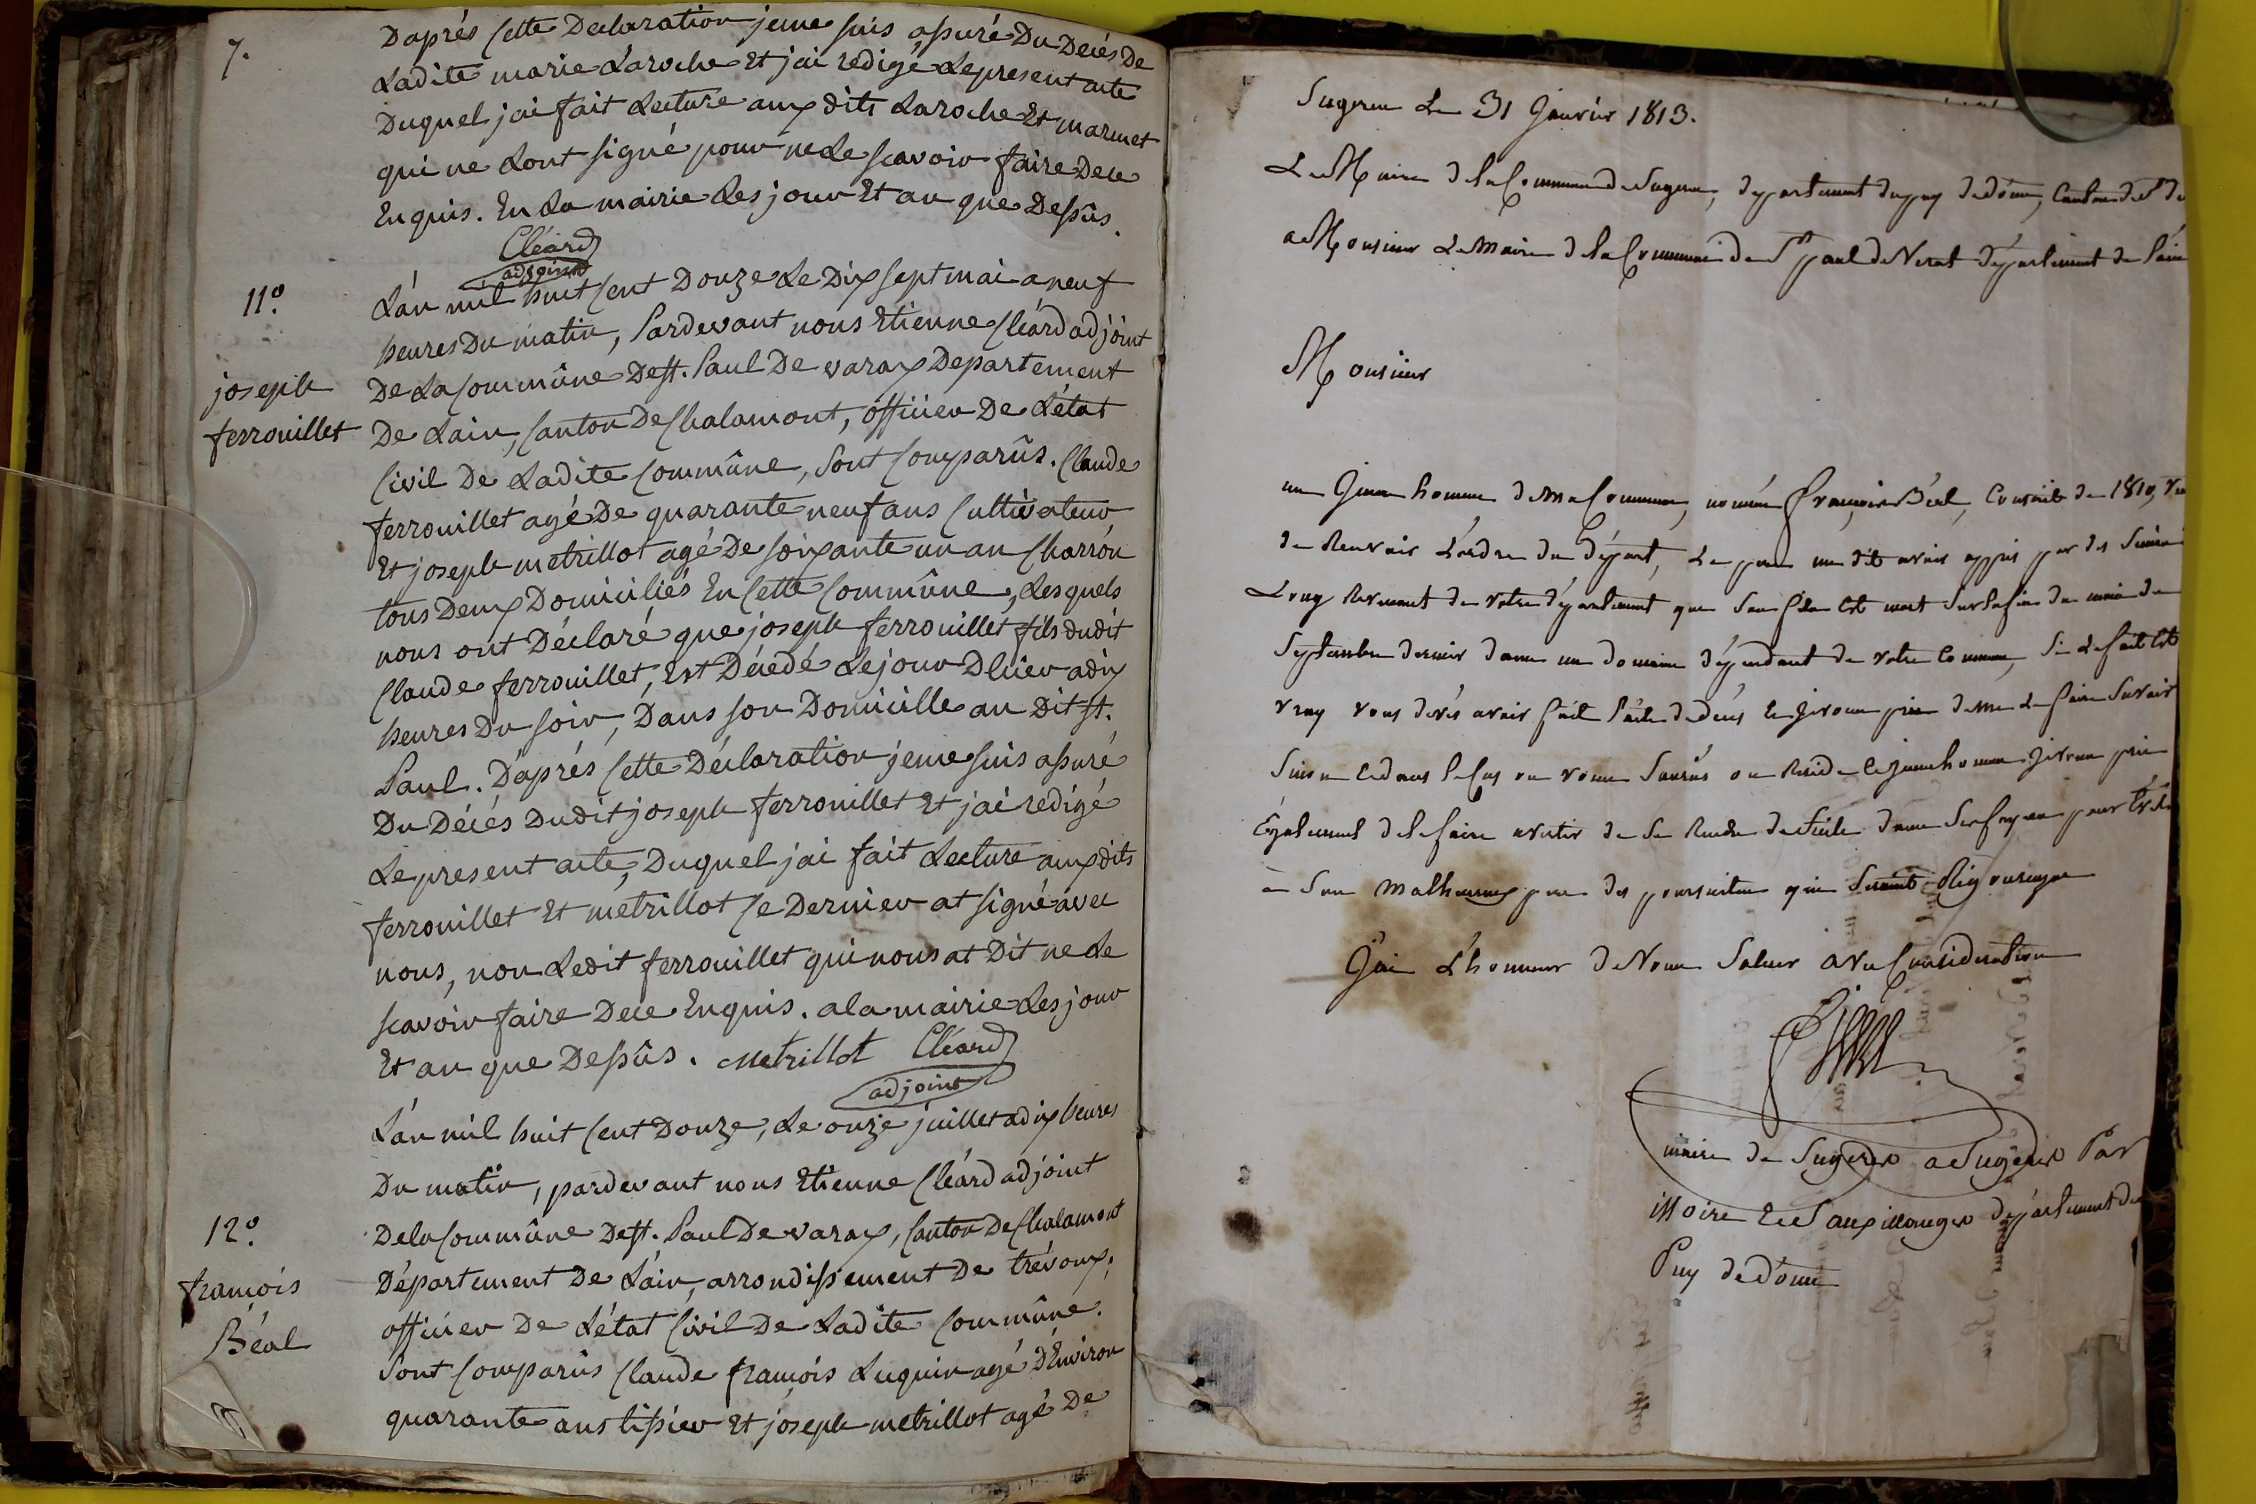 7.
Daprés cette Declaration jeme suis assuré Du Decés De
Ladite marie Laroche Et jai redigé Lepresent acte
Duquel jai fait Lecture aux dits Laroche Et marmet
qui ne Lont signé pour nele scavoir faire Dece
Enquis. En La mairie Les jour Et an que Dessûs.
Cléard
adjoint
11.º
joseph
ferrouillet
L'an mil huit cent Douze Le Dix sept mai a neuf
heures Du matin, Pardevant nous Etienne Cléard adjoint
De La Commûne De st. Paul De varax Departement
De Lain, Canton De Chalamont, officier De L'état
Civil De Ladite Commûne, sont Comparûs. Claude
ferrouillet agé De quarante neuf ans Cultivateur
Et joseph metrillot agé De soixante un an Charrón
tous Deux Domiciliés En Cette Commûne, Lesquels
nous ont Déclaré que joseph ferrouillet fils dudit
Claude ferrouillet, Est Décedé Le jour D'hier a dix
heures Du soir, Dans son Domicille au Dit st.
Paul. D'aprés Cette Déclaration jeme suis assuré
Du Décés Dudit joseph ferrouillet Et jai redigé
Le present acte, Duquel jai fait Lecture auxdits
ferrouillet Et métrillot Ce Dernier at signé avec
nous, non Ledit ferrouillet qui nous at Dit ne Le
scavoir faire Dece Enquis. a la mairie Les jour
Et an que Dessûs. Metrillot Cléard
adjoint
12.º
françois
Béal
L'an mil huit Cent Douze, Le onze juillet a dix heures
Du matin, pardevant nous Etienne Cléard adjoint
De la Commûne De st. Paul De varax, Canton De Chalamont
Département De L'ain, arrondissement De trévoux,
officier De L'état Civil De Ladite Commûne.
Sont Comparûs Claude françois Luquin agé D'Environ
quarante ans tissier Et joseph metrillot agé De
Sugeres Le 31 Janvier 1813.
Le Maire de la Commune de Sugeres, departement du puy de dôme, Canton de St
a Monsieur Le Maire de la Commune de St paul de Verat département de l'ain
Monsieur
un Jeune homme de ma Commune, nommé françois Béal, Conscrit de 1810,
de Recevoir L'ordre du départ, Le pere me dit avoir appris par des
Long Revenant de votre département que son fils Est mort sur la fin du mois de
Septembre dernier dans un domaine dépendant de votre Commune, Si Le fait Est
vray vous devés avoir fait l'acte de décés Et je vous prie de me Le faire Savoir
ce jeune homme je vous prie
Également de le faire avertir de se Rendre de suite dans ses foyers pour
à son malheureux pere des poursuites qui seront Rigoureuses
J'ai L'honneur de Vous Saluer avec Consideration
maire de Sugeres a Sugeres Par
issoire Et Sauxillanges département du
Puy de dôme